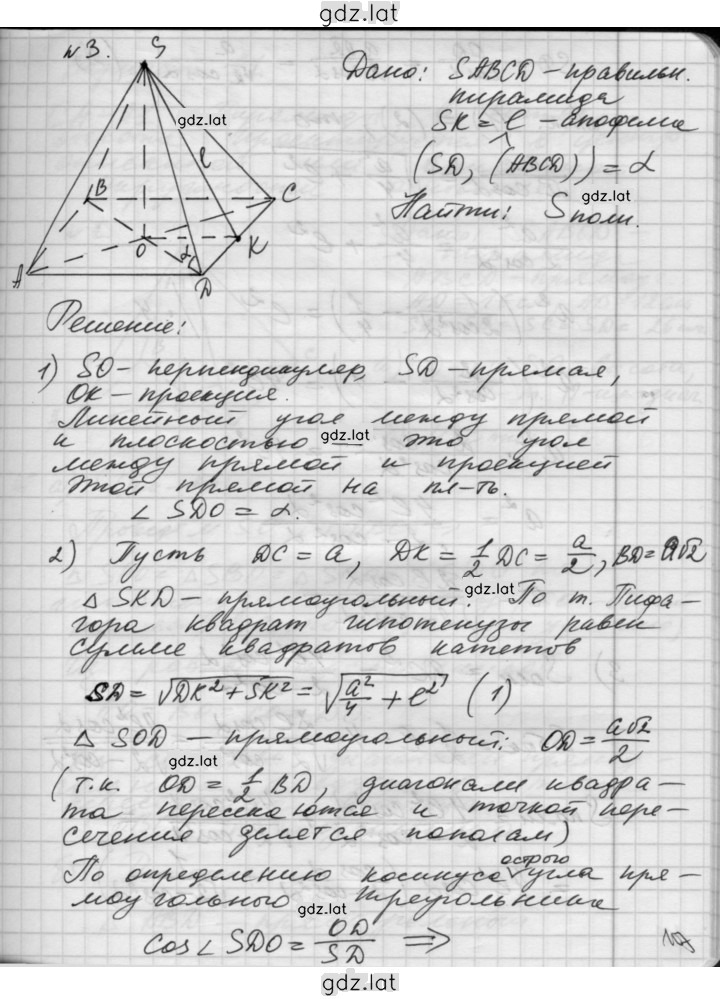 gdz.lat
№3.
S
gdz.lat
l
B
C
O
K
α
A
D
Дано: SABCD – правильн.
пирамида
SK = l – апофема
(SD, (ABCD)) = α
gdz.lat
Найти: Sполн.
Решение:
1) SO – перпендикуляр, SD – прямая,
OK – проекция.
Линейный угол между прямой
и плоскостью — это угол
gdz.lat
между прямой и проекцией
этой прямой на пл-ть.
∠ SDO = α.
2) Пусть DC = a, DK = 1/2 DC = a/2, BD = a√2
gdz.lat
△ SKD – прямоугольный. По т. Пифа-
гора квадрат гипотенузы равен
сумме квадратов катетов
SD = √(DK² + SK²) = √(a²/4 + l²) (1)
△ SOD – прямоугольный: OD = a√2/2
(т.к. OD = 1/2 BD, диагонали квадра-
gdz.lat
та пересекаются и точкой пере-
сечения делятся пополам)
По определению косинуса острого угла пря-
моугольного треугольника
gdz.lat
cos∠ SDO = OD/SD ⇒
gdz.lat
gdz.lat